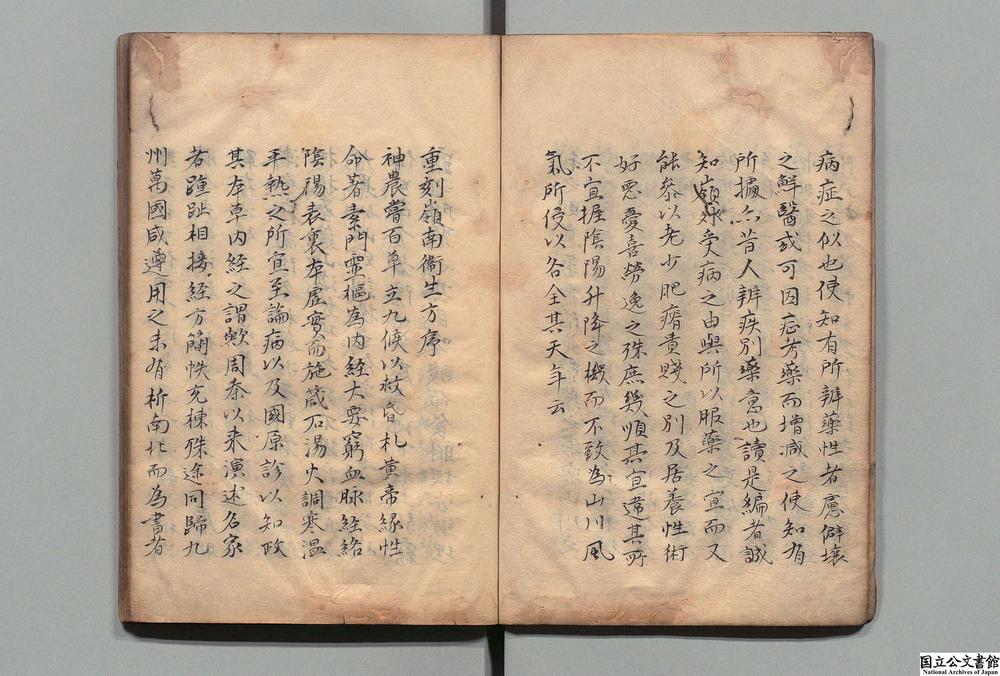 病症之似也使知有所辨藥性者慮僻壤
之鮮醫或可因症考藥而增减之使知有
所據亦昔人辨疾別藥意也讀是編者誠
知嶺外受病之由與所以服藥之宜而又
能參以老少肥瘠貴賤之別及居養性術
好惡愛喜勞逸之殊庶幾順其宜違其所
不宜握陰陽升降之機而不致為山川風
氣所侵以各全其天年云
重刻嶺南衞生方序
神農嘗百草立九候以救昏札黄帝緣性
命著素問靈樞為内經大要窮血脉經絡
陰陽表裏本虛實而施箴石湯火調寒温
平熱之所宜至論病以及國原診以知政
其本草内經之謂歟周秦以来演述名家
者踵趾相接經方簡帙充棟殊途同歸九
州萬國咸遵用之未有析南北而為書者
国立公文書館
National Archives of Japan